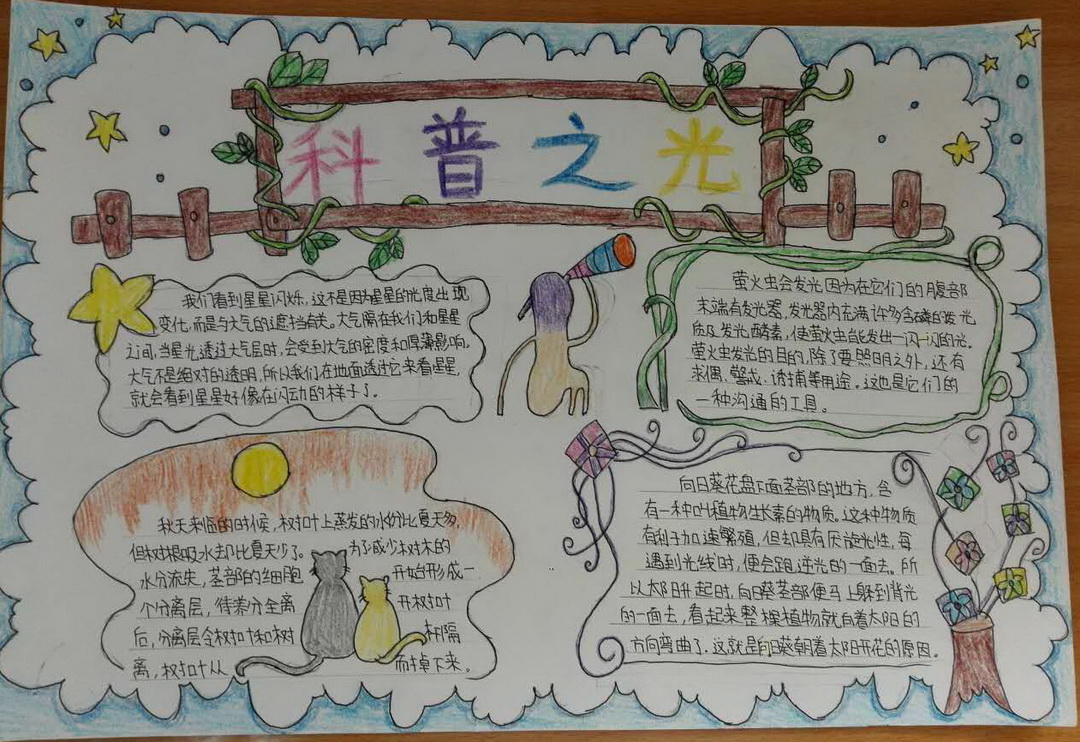 科普之光
我们看到星星闪烁，这不是因为星星的光度出现
变化，而是与大气的遮挡有关。大气隔在我们和星星
之间，当星光透过大气层时，会受到大气的密度和厚薄影响。
大气不是绝对的透明，所以我们在地面透过它来看星星，
就会看到星星好像在闪动的样子了。
萤火虫会发光因为在它们的腹部
末端有发光器，发光器内充满许多含磷的发光
质及发光酵素，使萤火虫能发出一闪一闪的光。
萤火虫发光的目的，除了要照明之外，还有
求偶、警戒、诱捕等用途。这也是它们的
一种沟通的工具。
秋天来临的时候，树叶上蒸发的水份比夏天多，
但树根吸水却比夏天少了。为了减少树木的
水分流失，茎部的细胞开始形成一
个分离层，待养分全离开树叶
后，分离层令树叶和树枏隔
离，树叶从而掉下来。
向日葵花盘下面茎部的地方，含
有一种叫植物生长素的物质。这种物质
有利于加速繁殖，但却具有厌旋光性，每
遇到光线时，便会跑逆光的一面去。所
以太阳升起时，向日葵茎部便马上躲到背光
的一面去，看起来整棵植物就向着太阳的
方向弯曲了，这就是向日葵朝着太阳开花的原因。